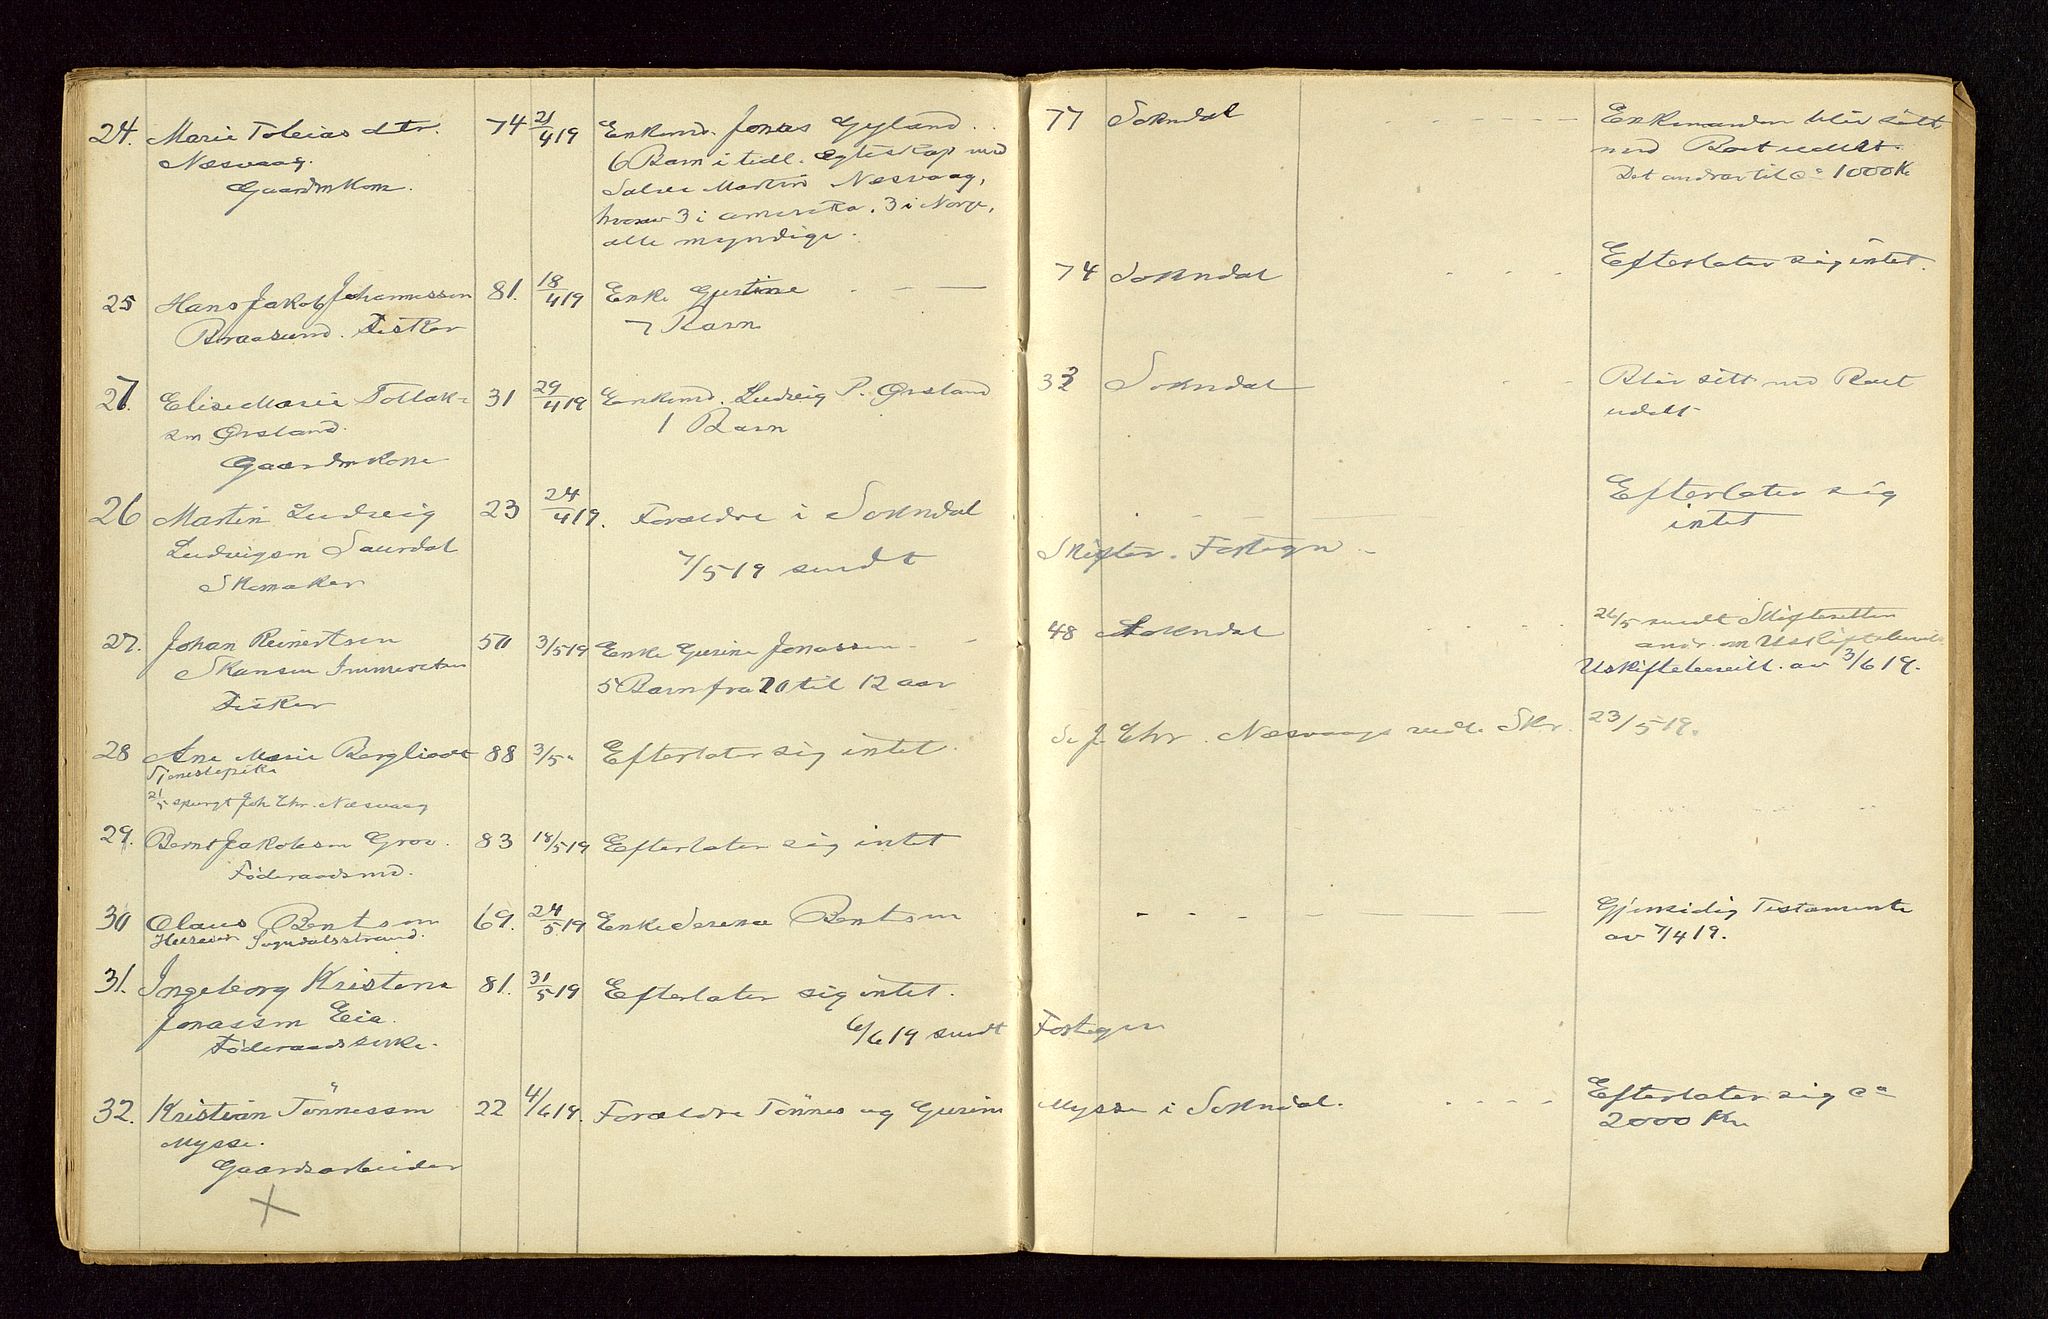 24. Marie Tobias dtr. 74 21/4 19 Enkemd. Jonas Gyland.
Næsvaag. 6 Barn i tidl. Egteskap med
Gaardmkone. Salve Martin Næsvaag,
hvorav 3 i Amerika. 3 i Norge,
alle myndige.
25 Hans Jakob Johannessen 81. 18/4 19 Enke Gurine - - -
Braasund. Fisker 7 Barn
27. Elise Marie Tollak- 31 29/4 19 Enkemd. Ludvig P. Ørsland
sen Ørsland. 1 Barn
Gaardmkone
26 Martin Ludvig 23 24/4 19. Forældre i Sokndal
Ludvigsen Saurdal 7/5 19 sendt
Skomaker
27. Johan Reinertsen 50 3/5 19 Enke Gurine Jonassen -
Skansen Immerstein 5 Barn fra 20 til 12 aar
Fisker
28 Ane Marie Bergliodt 88 3/5 " Efterlater sig intet.
Tjenestepike
21/5 spurgt Joh Chr. Næsvaag
29. Bernt Jakobsen Grov. 83 18/5 19 Efterlater sig intet
Føderaadsmd.
30 Olaus Bentsen 69. 24/5 19 Enke Serena Bentsen
Huseier Sogndalsstrand.
31. Ingeborg Kristene 81. 31/5 19 Efterlater sig intet.
Jonassen Eia. 6/6 19 sendt
Føderaadsenke.
32. Kristian Tönnessen 22 4/6 19. Forældre Tönnes og Gurine
Mysse.
Gaardsarbeider
77 Sokndal - - - - - Enkemanden blir sitt.
med Boet udelt.
Det andrar til ca 1000 Kr
74 Sokndal - - - Efterlater sig intet.
32 Sokndal - - Blir sitt. med Boet
udelt
- - - - Efterlater sig
intet
Skifter. Fortegn -
48 Sokndal - - - 26/5 sendt Skifteretten
andr. om Uskiftebevill
Uskiftebevill. av 3/6 19.
Se J. Chr. Næsvaags vedl. Skr. 23/5 19.
- - - - Gjensidig Testamente
av 7/4 19.
Fortegn
Mysse i Sokndal. - - - - Efterlater sig ca
2000 Kr